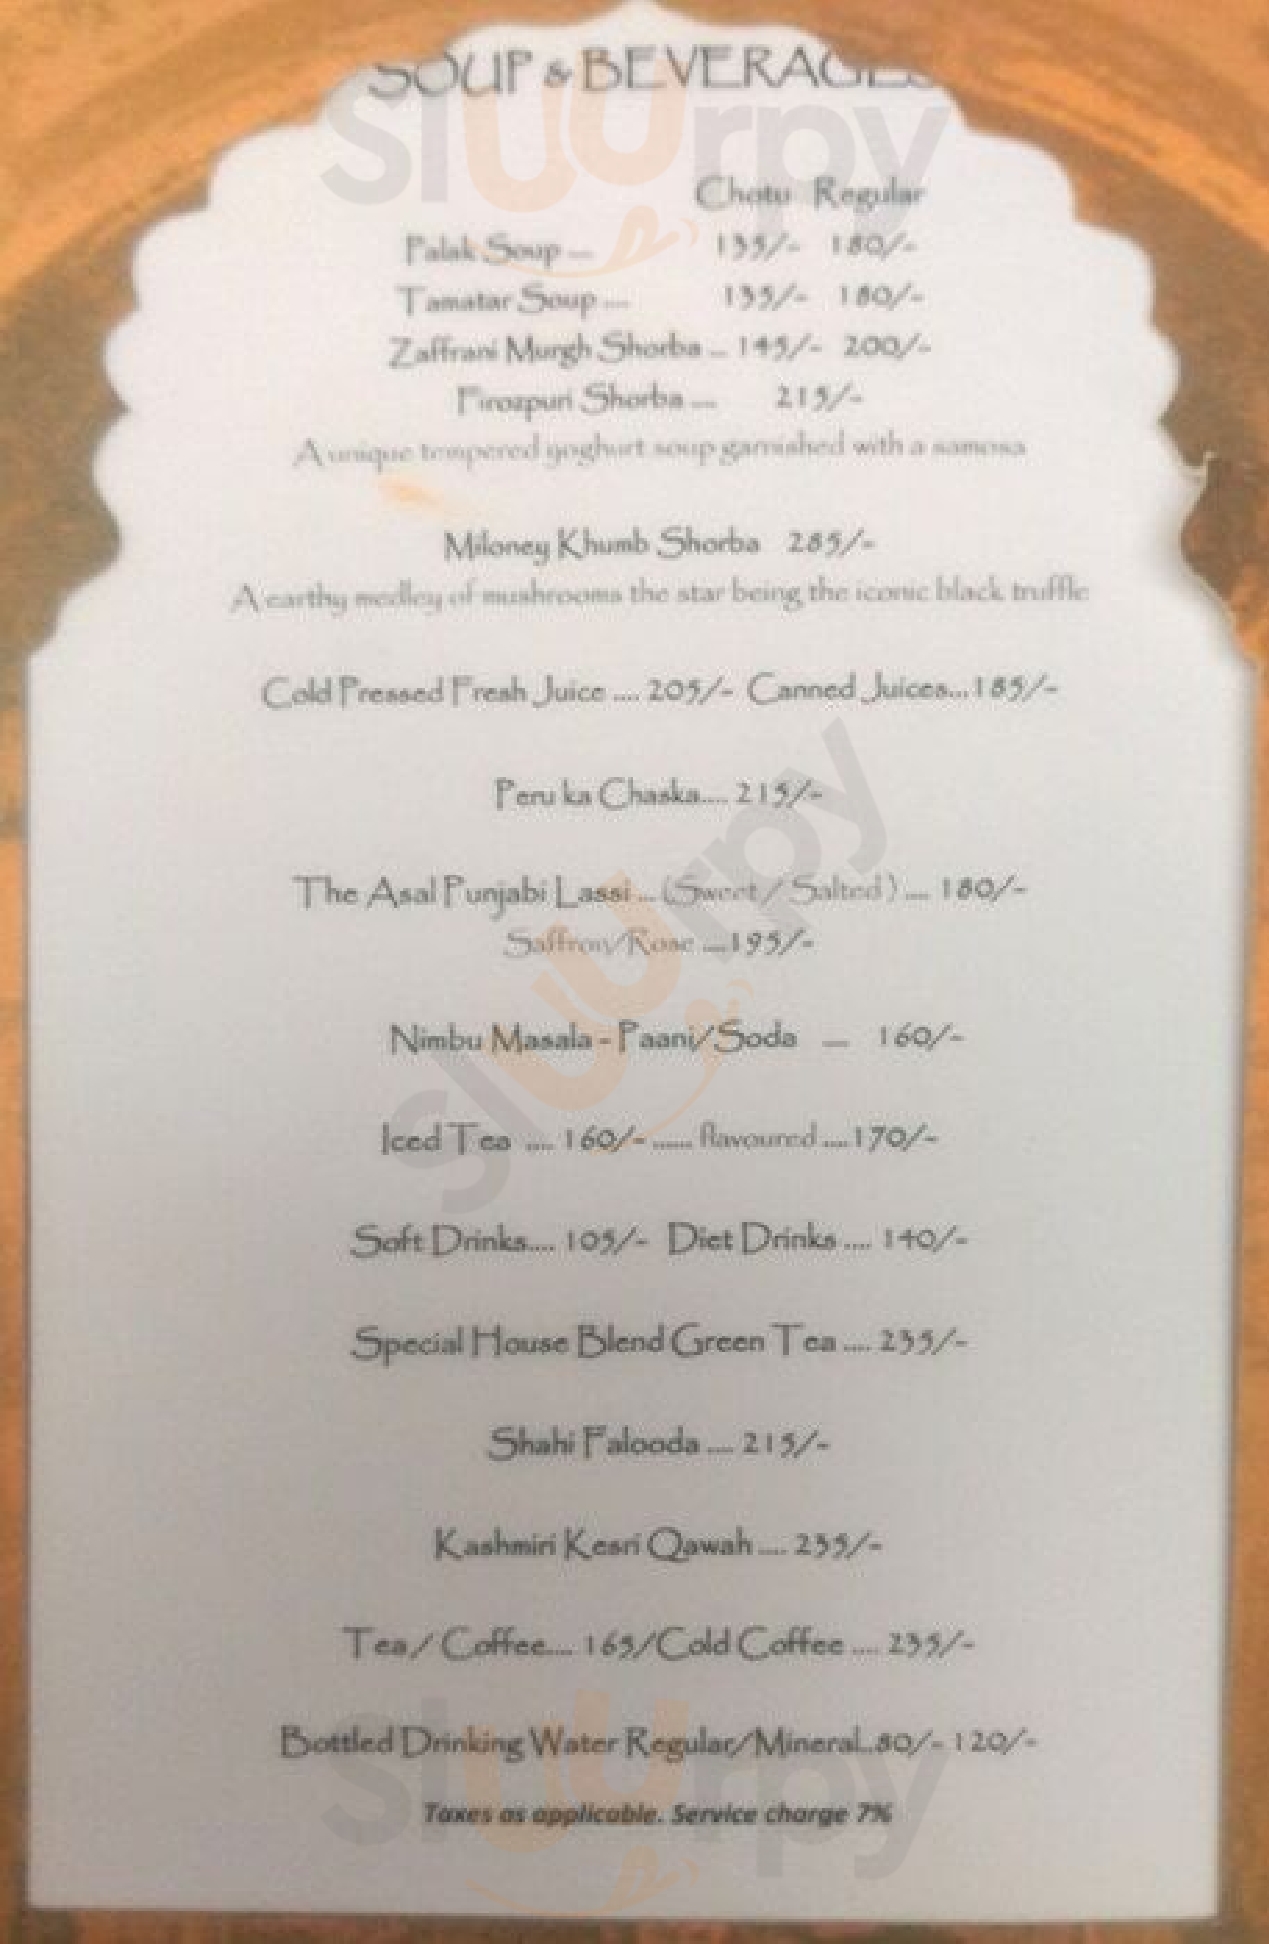 SOUP & BEVERAGES
Chotu Regular
Palak Soup ... 135/- 180/-
Tamatar Soup .... 135/- 180/-
Zaffrani Murgh Shorba ... 145/- 200/-
Firozpuri Shorba .... 215/-
A unique tempered yoghurt soup garnished with a samosa
Miloney Khumb Shorba 285/-
A earthy medley of mushrooms the star being the iconic black truffle
Cold Pressed Fresh Juice .... 205/- Canned Juices...185/-
Peru ka Chaska.... 215/-
The Asal Punjabi Lassi ... (Sweet / Salted) .... 180/-
Saffron/Rose ....195/-
Nimbu Masala - Paani/Soda ... 160/-
Iced Tea .... 160/- ...... flavoured ....170/-
Soft Drinks.... 105/- Diet Drinks .... 140/-
Special House Blend Green Tea .... 235/-
Shahi Falooda .... 215/-
Kashmiri Kesri Qawah .... 235/-
Tea / Coffee.... 165/Cold Coffee .... 235/-
Bottled Drinking Water Regular/Mineral..80/- 120/-
Taxes as applicable. Service charge 7%
Sluurpy
Sluurpy
Sluurpy